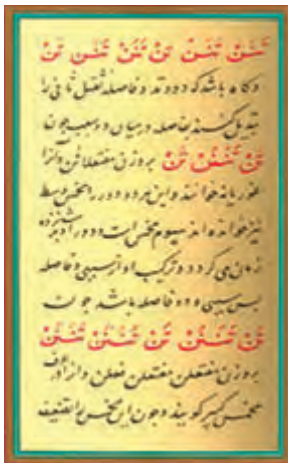 تَنَنْ تَنَنْ تَنْ تَنَنْ تَنَنْ تَنْ
و گاه باشد که دو وتد و فاصله ثقیل ثانی را
تبدیل کنند بفاصله و بیان دو سبب چون
تَنْ تَنَنَنْ تَنْ بر وزن مفتعلاتن و آنرا
نیز خوانده اند سیوم مخمس است و دور او شانزده
زمان می گردد و ترکیب او از سببی و فاصله
پس سببی و دو فاصله باشد چون
تَنْ تَنَنَنْ تَنْ تَنَنَنْ تَنَنَنْ
بر وزن مفتعلن مفتعلن فعلن و از
مخمس کبیر گویند و چون این مخمس را تضعیف